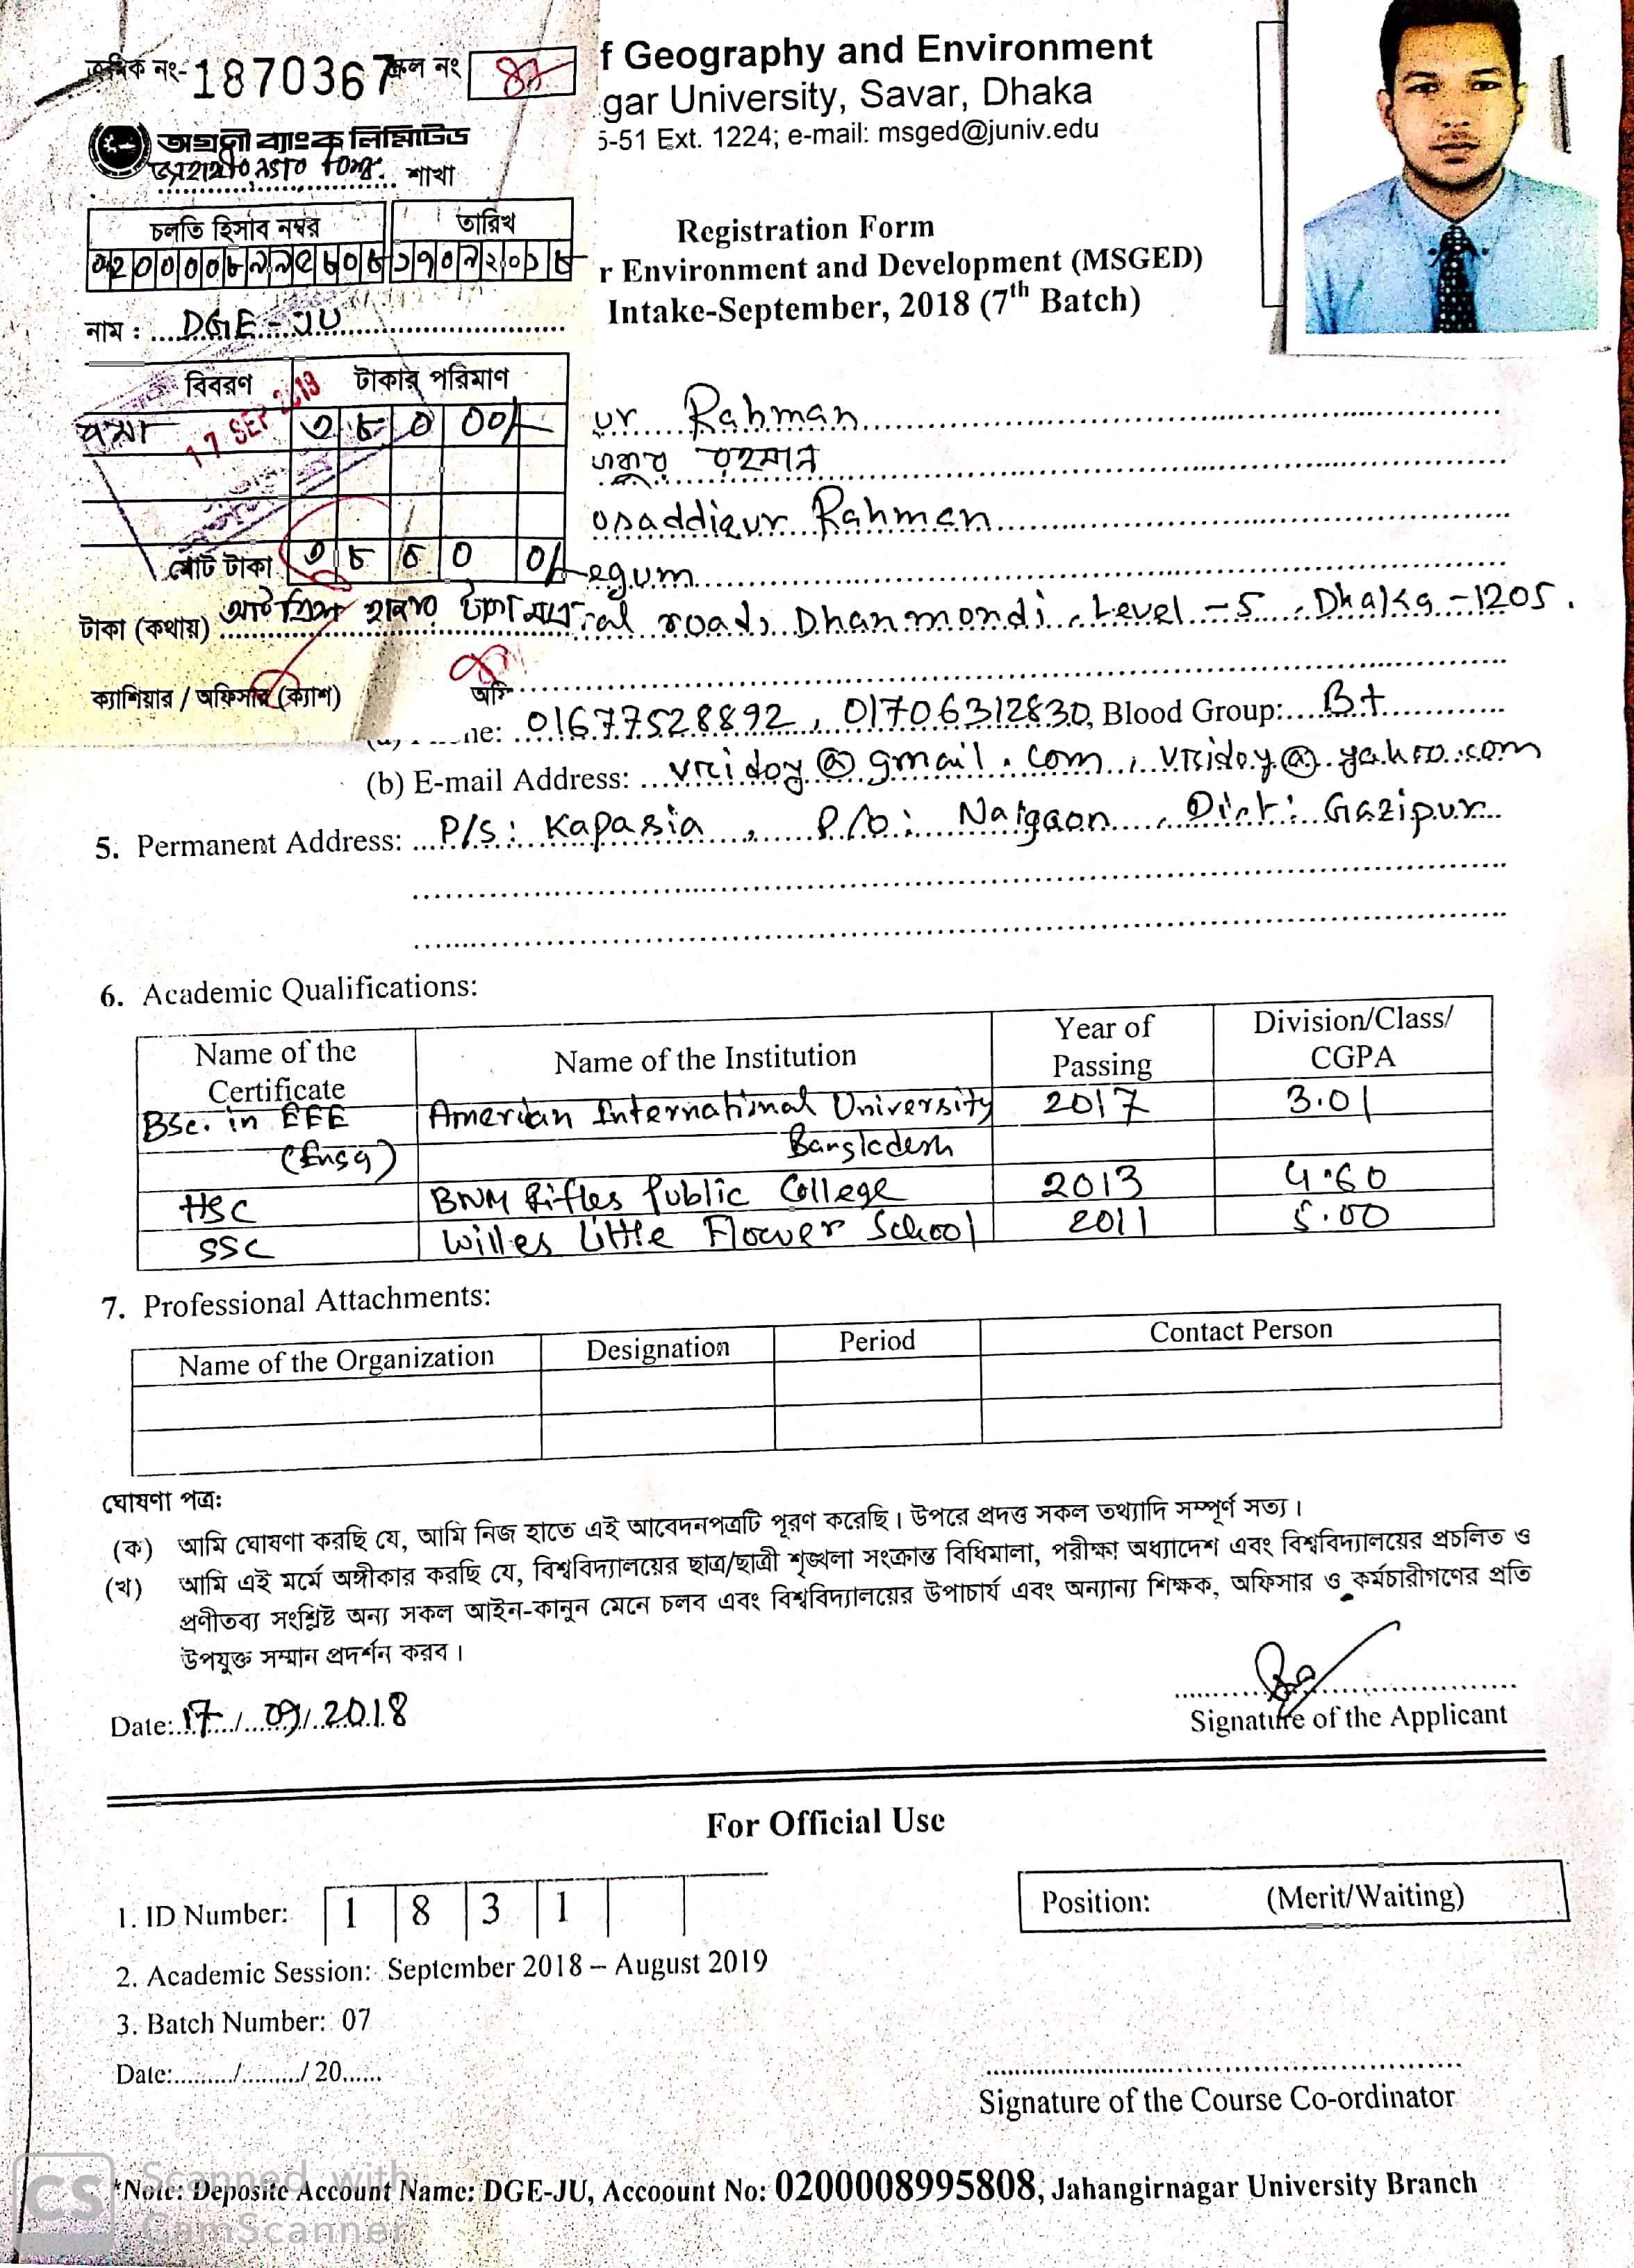 ক্রমিক নং- 1870367 স্ক্রল নং
অগ্রণী ব্যাংক লিমিটেড
শাখা
চলতি হিসাব নম্বর তারিখ
০২০০০০৮৯৯৫৮০৮ ১৭০৯২০১৮
নাম : DGE-JU
বিবরণ টাকার পরিমাণ
17 SEP 2018
জমা ৩৮০০০/-
মোট টাকা ৩৮০০০/-
টাকা (কথায়) আটত্রিশ হাজার টাকা মাত্র
ক্যাশিয়ার / অফিসার (ক্যাশ)
f Geography and Environment
gar University, Savar, Dhaka
5-51 Ext. 1224; e-mail: msged@juniv.edu
Registration Form
r Environment and Development (MSGED)
Intake-September, 2018 (7th Batch)
ur Rahman
রহমান
osaddiqur Rahman
egum
ral road, Dhanmondi, Level-5, Dhaka-1205.
ne: 01677528892, 01706312830, Blood Group: B+
(b) E-mail Address: vridoy@gmail.com, vridoy@yahoo.com
5. Permanent Address: P/S: Kapasia, P/O: Naigaon, Dist: Gazipur
6. Academic Qualifications:
Name of the Certificate Name of the Institution Year of Passing Division/Class/ CGPA
BSc. in EEE American International University 2017 3.01
(Engg) Bangladesh
HSC BNM Rifles Public College 2013 4.60
SSC Willes Little Flower School 2011 5.00
7. Professional Attachments:
Name of the Organization Designation Period Contact Person
ঘোষণা পত্র:
(ক) আমি ঘোষণা করছি যে, আমি নিজ হাতে এই আবেদনপত্রটি পূরণ করেছি। উপরে প্রদত্ত সকল তথ্যাদি সম্পূর্ণ সত্য।
(খ) আমি এই মর্মে অঙ্গীকার করছি যে, বিশ্ববিদ্যালয়ের ছাত্র/ছাত্রী শৃঙ্খলা সংক্রান্ত বিধিমালা, পরীক্ষা অধ্যাদেশ এবং বিশ্ববিদ্যালয়ের প্রচলিত ও
প্রণীতব্য সংশ্লিষ্ট অন্য সকল আইন-কানুন মেনে চলব এবং বিশ্ববিদ্যালয়ের উপাচার্য এবং অন্যান্য শিক্ষক, অফিসার ও কর্মচারীগণের প্রতি
উপযুক্ত সম্মান প্রদর্শন করব।
Date: 17/09/2018
Signature of the Applicant
For Official Use
1. ID Number: 1 8 3 1
Position: (Merit/Waiting)
2. Academic Session: September 2018 – August 2019
3. Batch Number: 07
Date:........./........./20......
Signature of the Course Co-ordinator
*Note: Deposite Account Name: DGE-JU, Accoount No: 0200008995808, Jahangirnagar University Branch
CS Scanned with
CamScanner